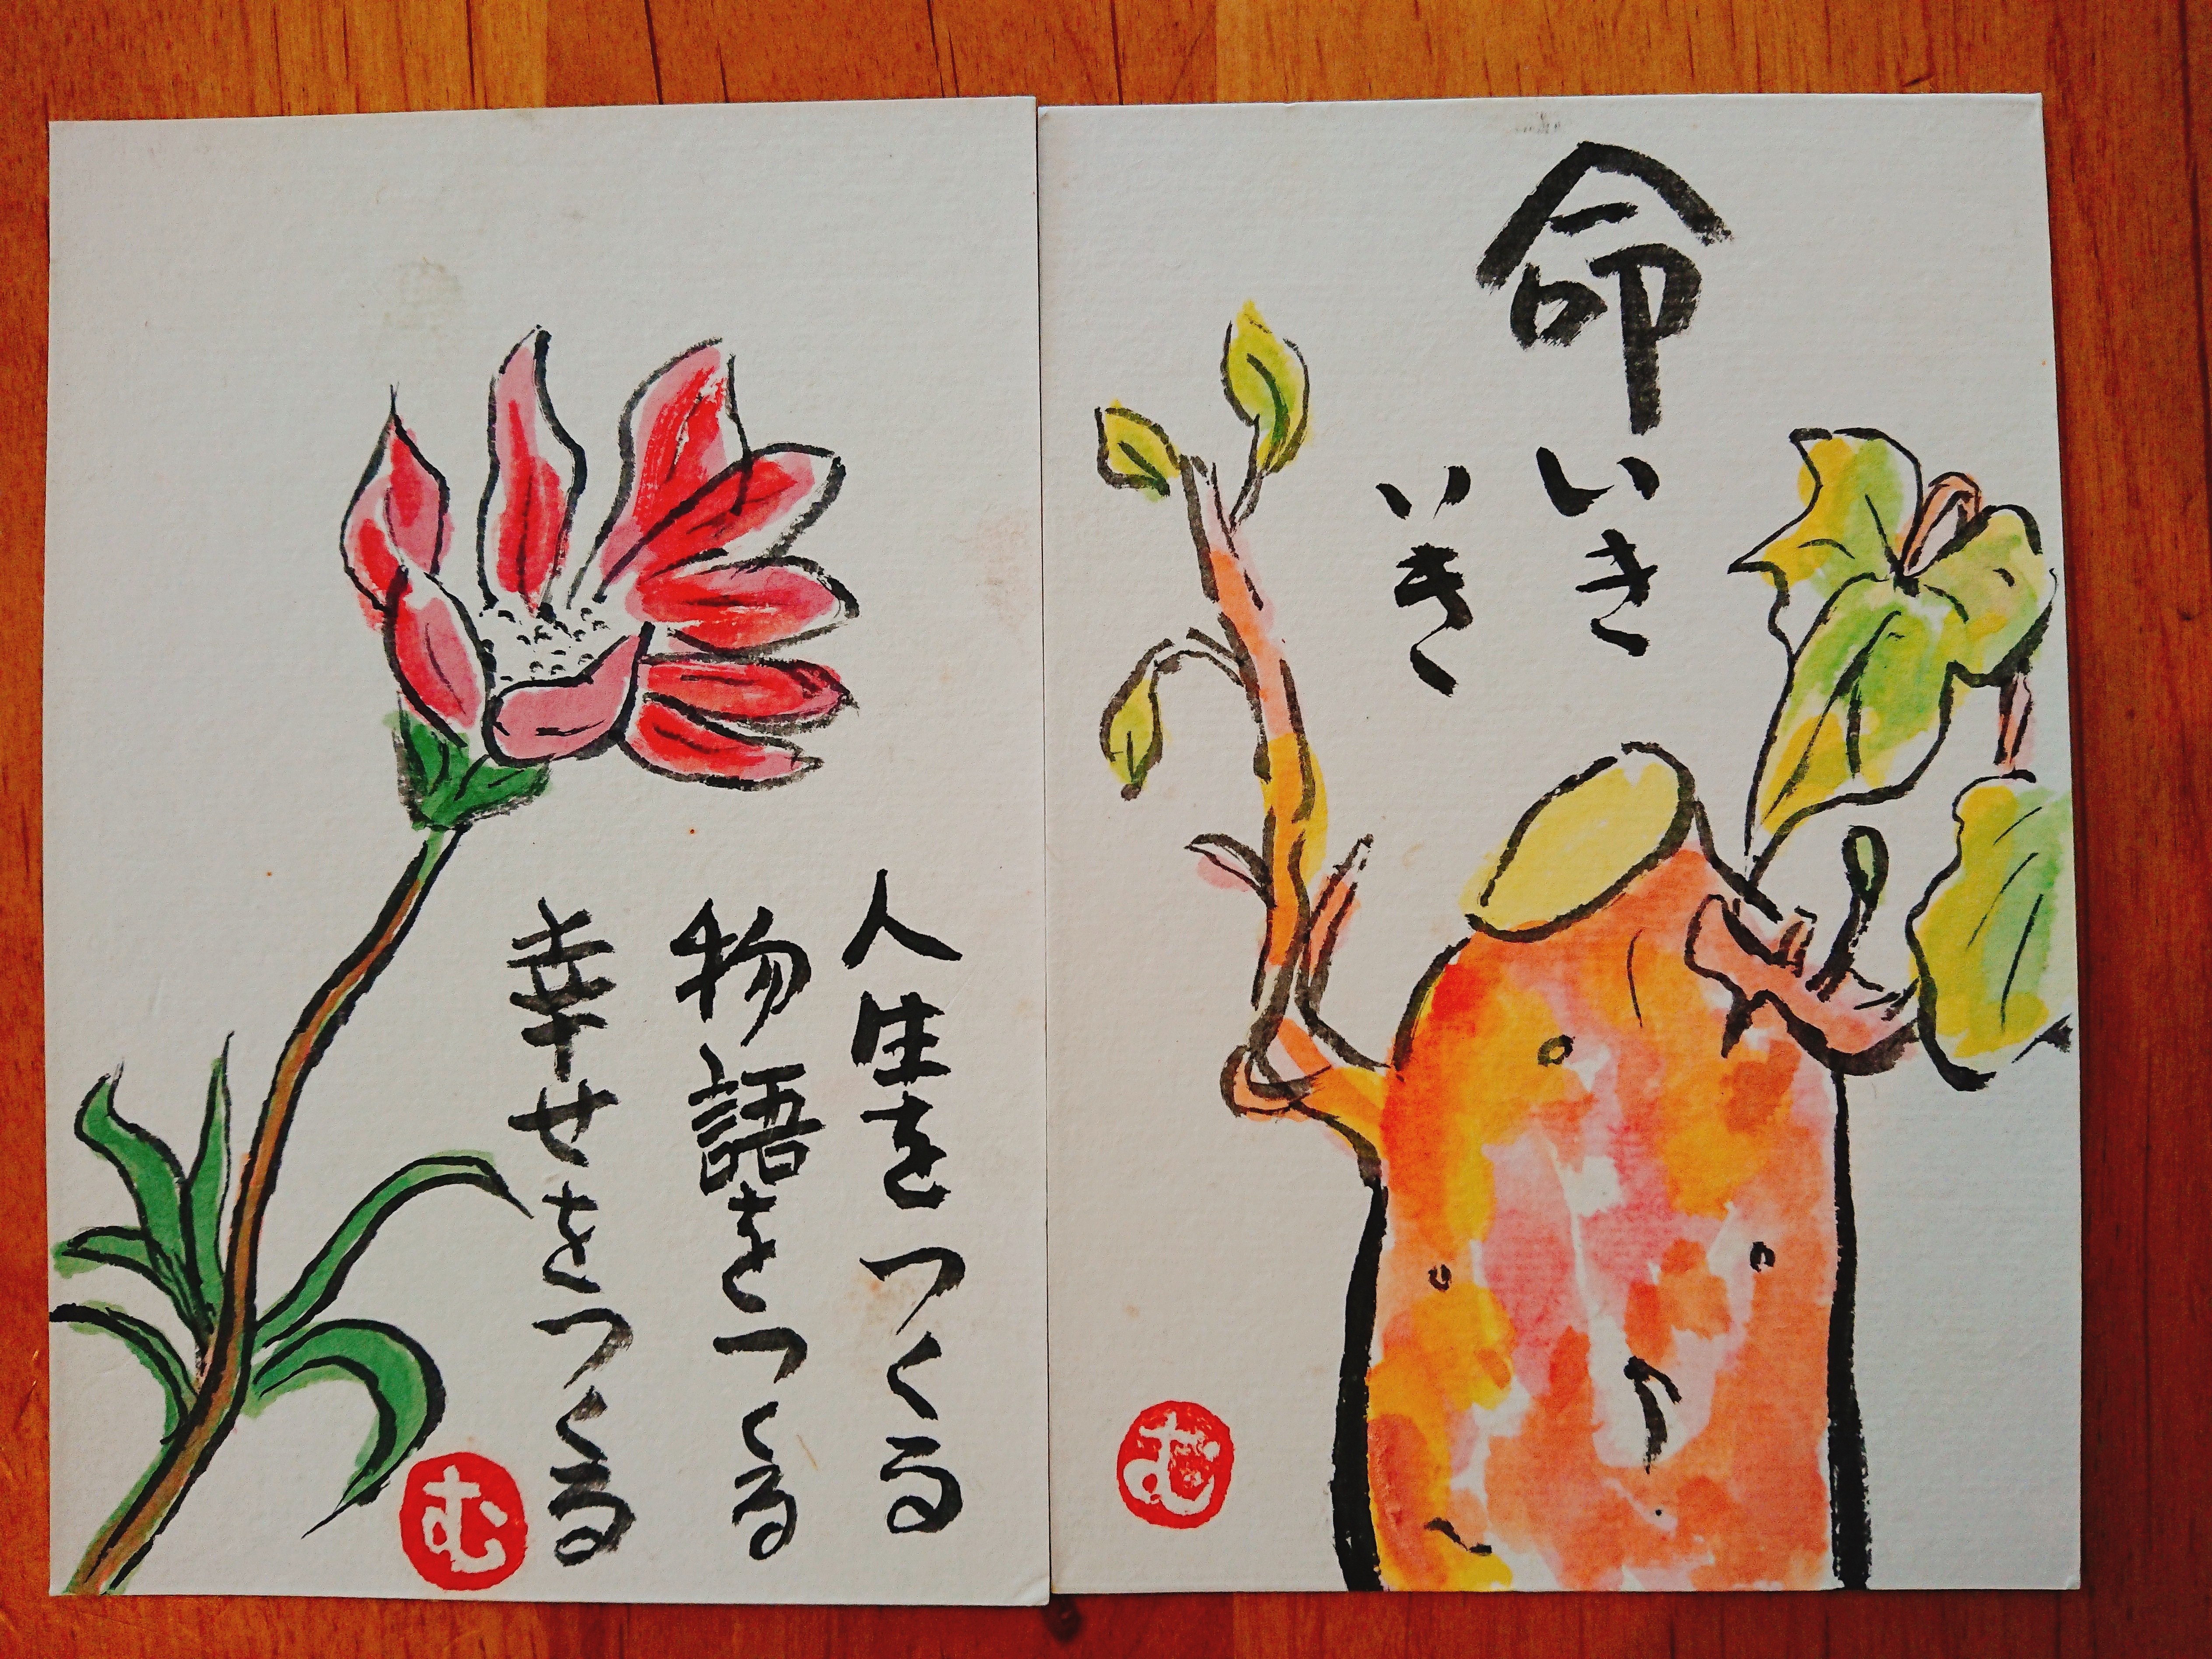 命いき
いき
む
人生をつくる
物語をつくる
幸せをつくる
む